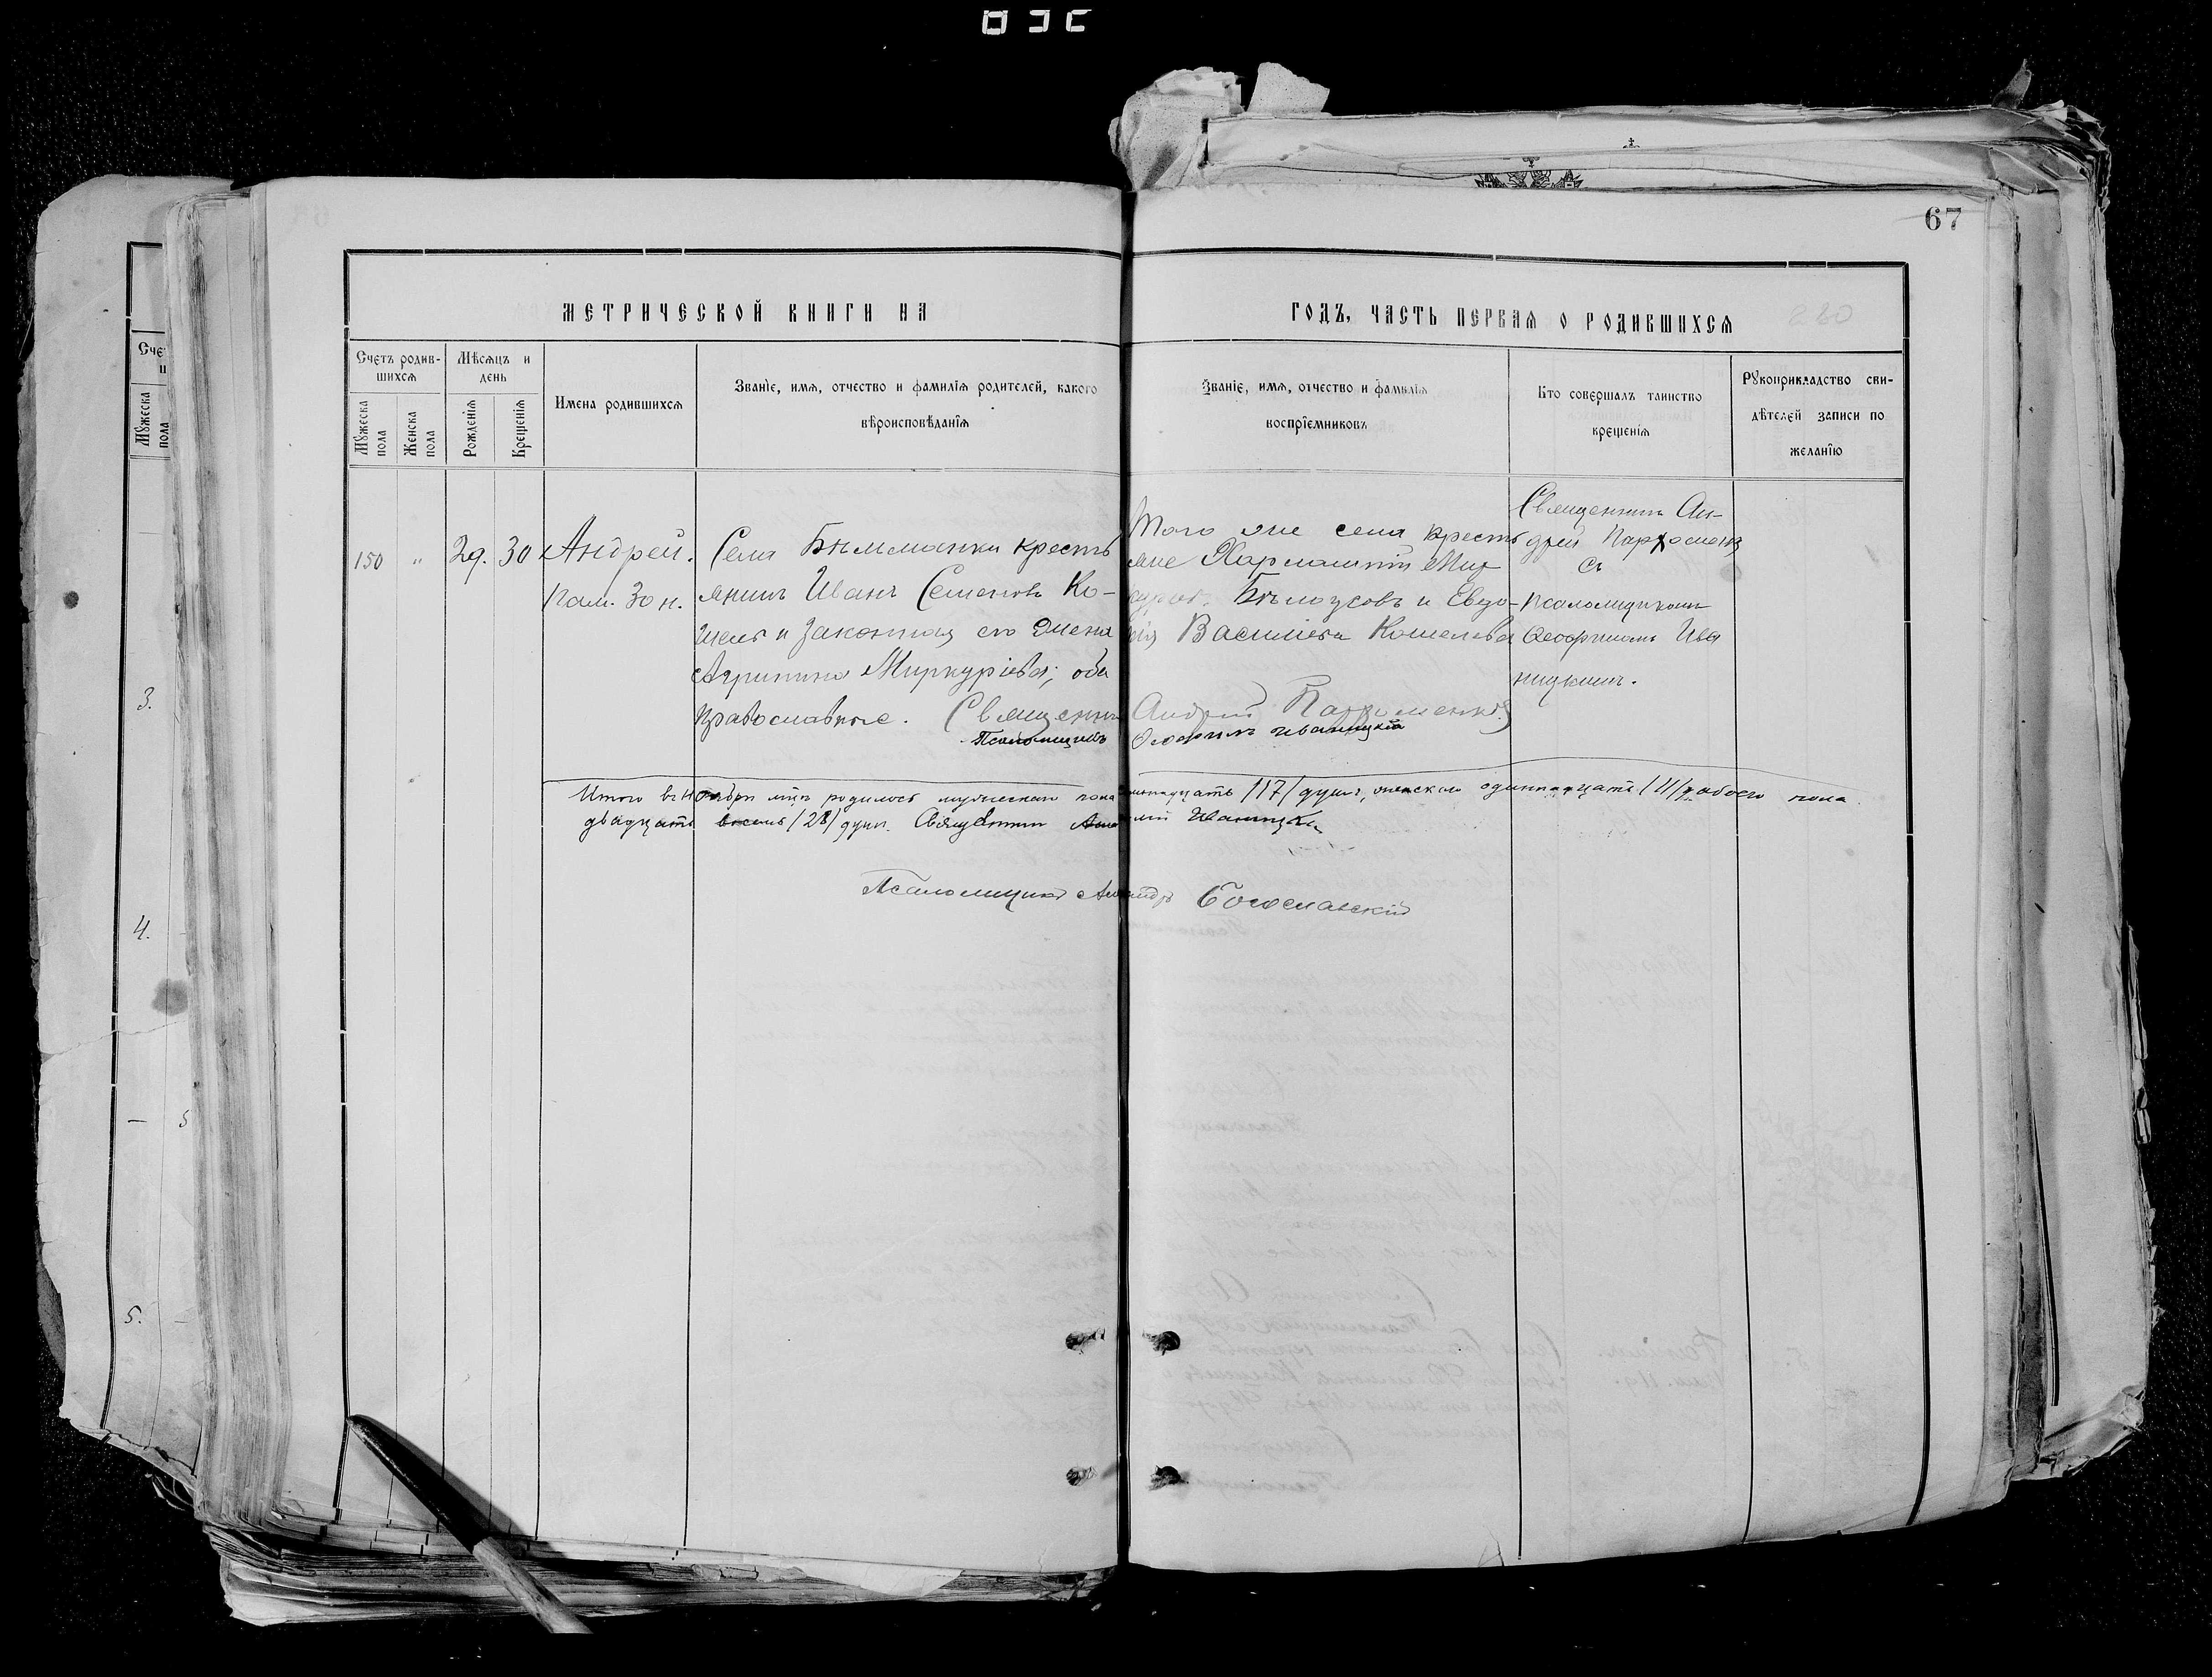 67
МЕТРИЧЕСКОЙ КНИГИ НА
ГОДЪ, ЧАСТЬ ПЕРВАЯ О РОДИВШИХСЯ
280
Счетъ родив-
шихся
Мѣсяцъ и
день
Имена родившихся
Званіе, имя, отчество и фамилія родителей, какого
вѣроисповѣданія
Званіе, имя, отчество и фамилія
воспріемниковъ
Кто совершалъ таинство
крещенія
Рукоприкладство сви-
дѣтелей записи по
желанію
Мужеска
пола
Женска
пола
Рожденія
Крещенія
150 " 29. 30
Андрей.
Пам. 30 н.
Села кресть
янинъ Иванъ Семеновъ Ко-
шель и законная его жена
Агрипина Миркуріева; оба
православные. Священникъ
Псаломщикъ
Того же села кресть
яне Харлампій
Бѣлоусовъ и Евдо-
кія Васильева Кошелева
Андрей Пархоменко
Ѳеофилъ Иваницкій
Священник Ан-
дрей Пархоменко
съ
псаломщикомъ
Ива
ницкимъ.
Итого въ Ноябрѣ м-цѣ родилось мужескаго пола семнадцать /17/ душъ, женскаго одиннадцать /11/ обоего пола
двадцать восемь /28/ душъ. Священникъ Иваницкій
Псаломщикъ Богославскій
3.
4.
5.